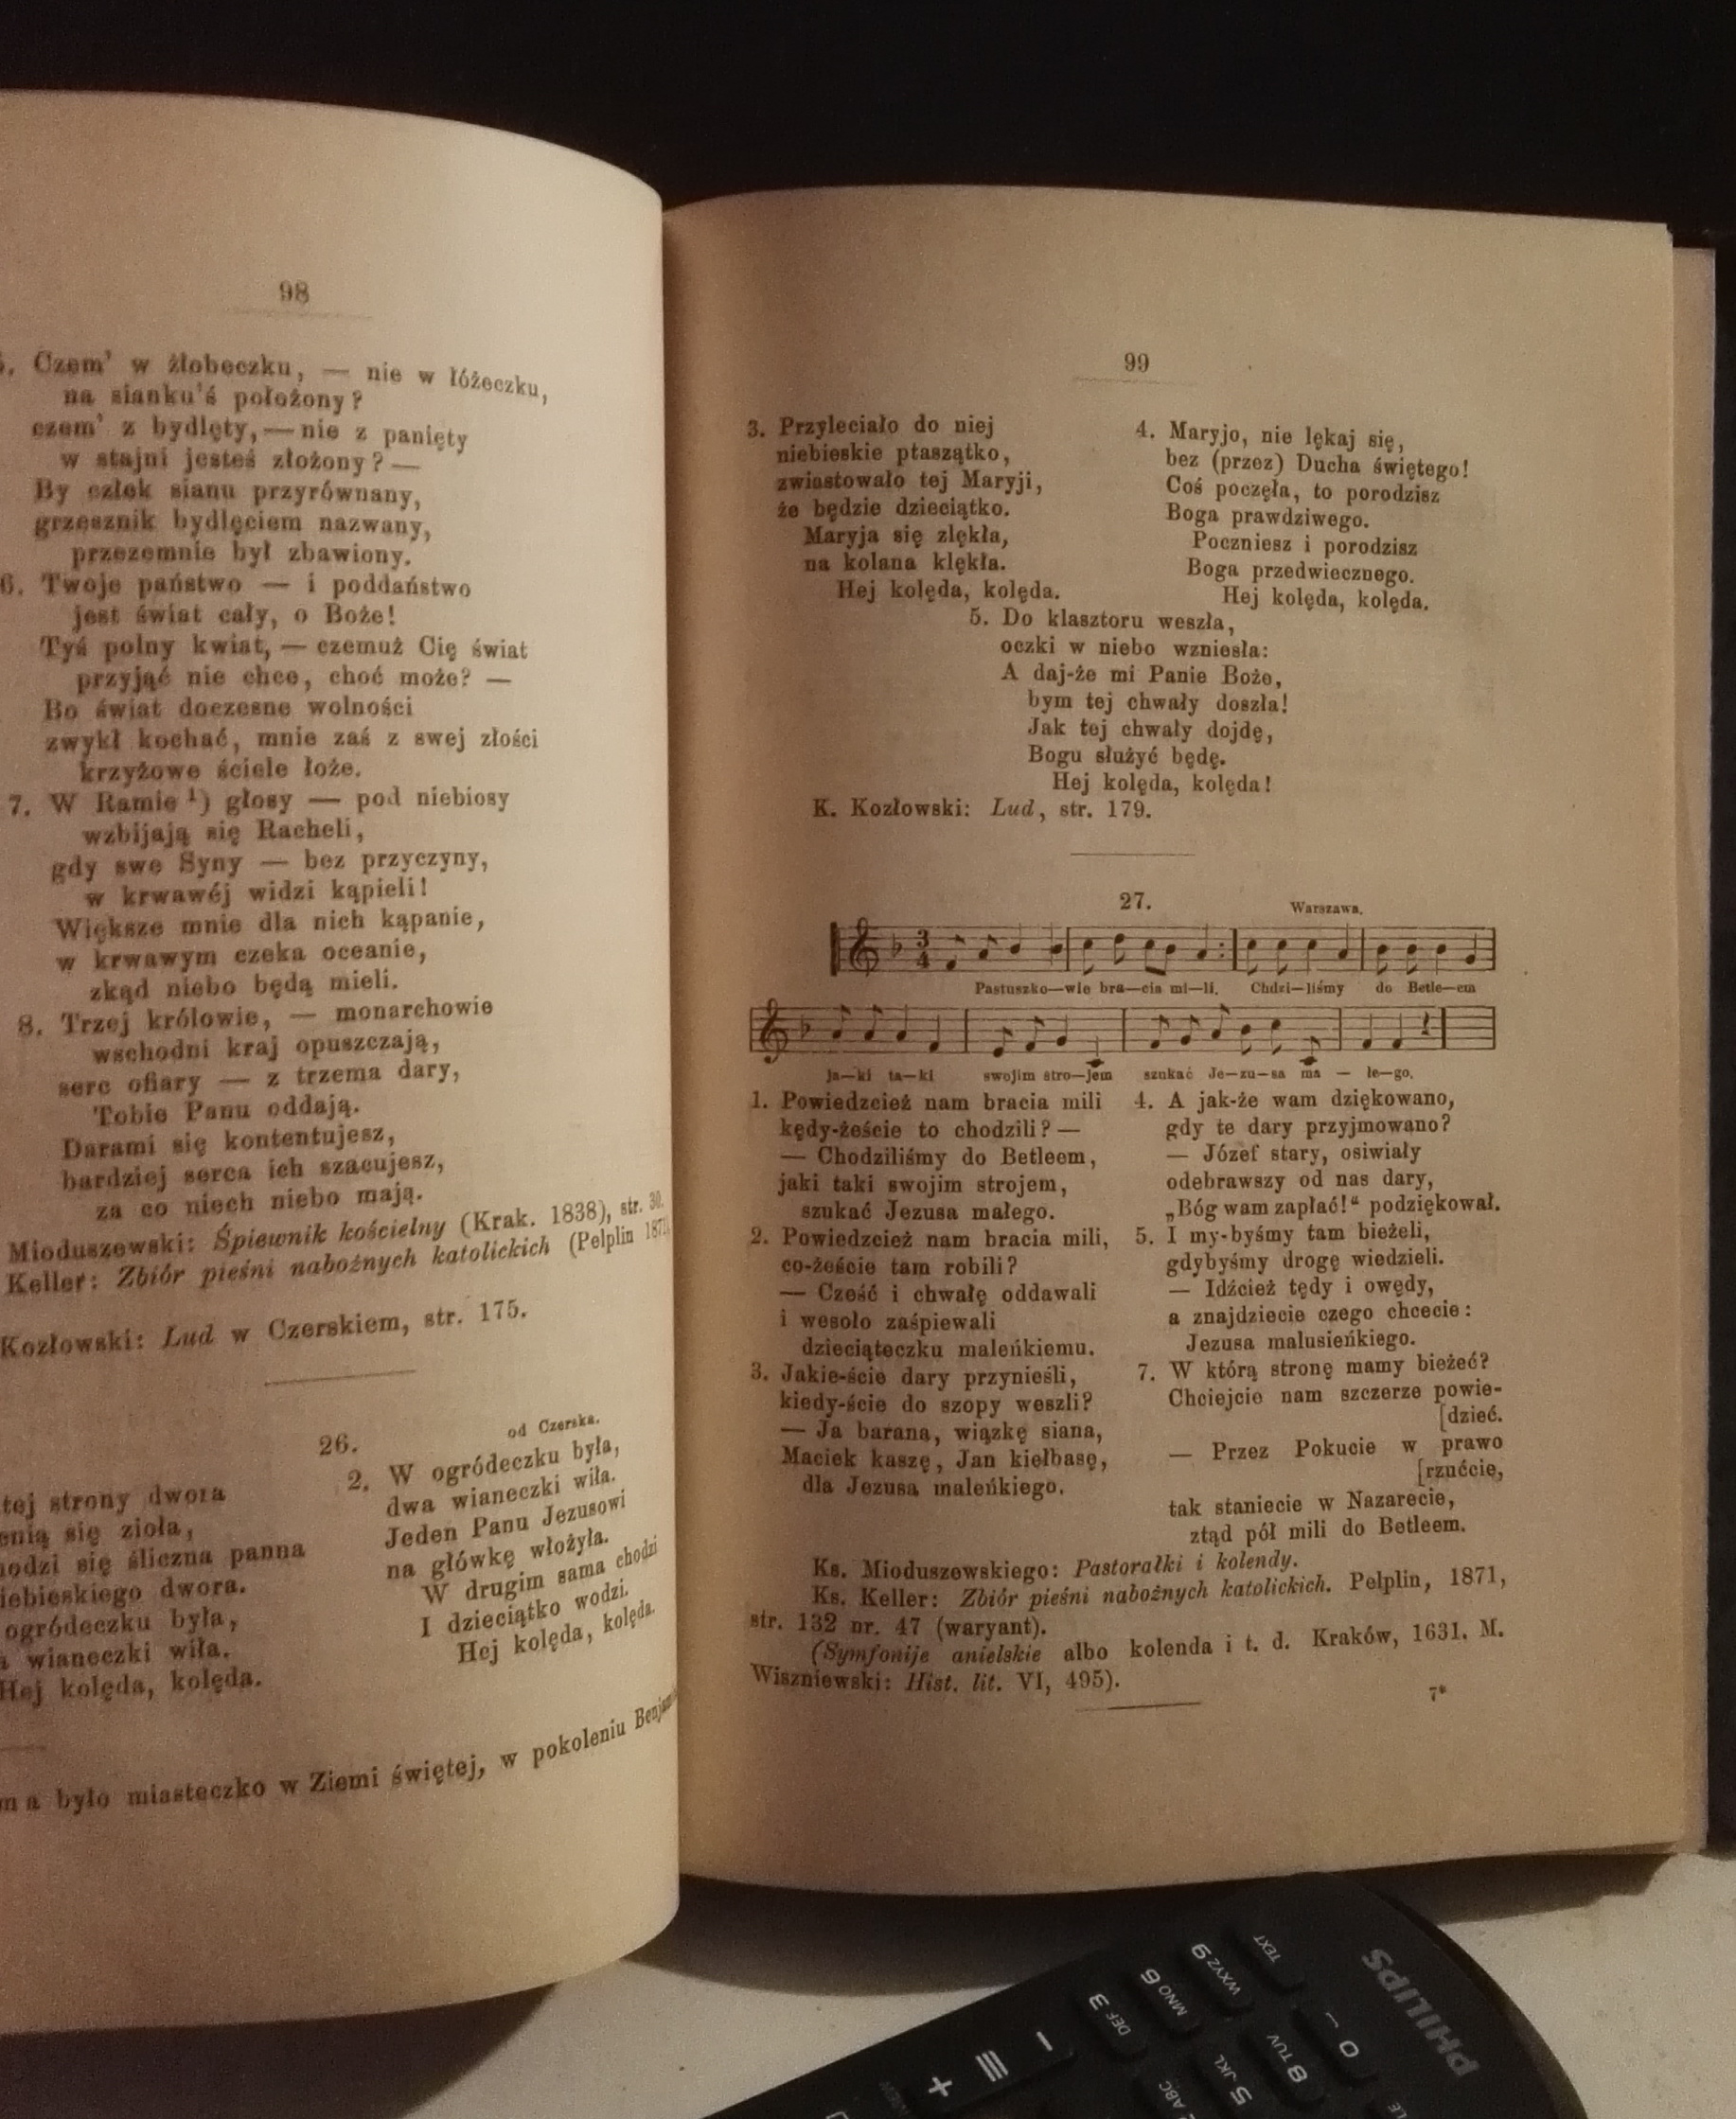 98
5. Czem' w żłobeczku, — nie w łóżeczku,
na sianku'ś położony?
czem' z bydlęty, — nie z panięty
w stajni jesteś złożony? —
By człek sianu przyrównany,
grzesznik bydlęciem nazwany,
przezemnie był zbawiony.
6. Twoje państwo — i poddaństwo
jest świat cały, o Boże!
Tyś polny kwiat, — czemuż Cię świat
przyjąć nie chce, choć może? —
Bo świat doczesne wolności
zwykł kochać, mnie zaś z swej złości
krzyżowe ściele łoże.
7. W Ramie ¹) głosy — pod niebiosy
wzbijają się Racheli,
gdy swe Syny — bez przyczyny,
w krwawéj widzi kąpieli!
Większe mnie dla nich kąpanie,
w krwawym czeka oceanie,
zkąd niebo będą mieli.
8. Trzej królowie, — monarchowie
wschodni kraj opuszczają,
serc ofiary — z trzema dary,
Tobie Panu oddają.
Darami się kontentujesz,
bardziej serca ich szacujesz,
za co niech niebo mają.
Mioduszewski: Śpiewnik kościelny (Krak. 1838), str. 30.
Keller: Zbiór pieśni nabożnych katolickich (Pelplin 1871
Kozłowski: Lud w Czerskiem, str. 175.
26.
od Czerska.
tej strony dwora
enią się zioła,
hodzi się śliczna panna
iebieskiego dwora.
ogródeczku była,
a wianeczki wiła.
Hej kolęda, kolęda.
2. W ogródeczku była,
dwa wianeczki wiła.
Jeden Panu Jezusowi
na główkę włożyła.
W drugim sama chodzi
I dzieciątko wodzi.
Hej kolęda, kolęda.
ma było miasteczko w Ziemi świętej, w pokoleniu Benjam
99
3. Przyleciało do niej
niebieskie ptaszątko,
zwiastowało tej Maryji,
że będzie dzieciątko.
Maryja się zlękła,
na kolana klękła.
Hej kolęda, kolęda.
4. Maryjo, nie lękaj się,
bez (przez) Ducha świętego!
Coś poczęła, to porodzisz
Boga prawdziwego.
Poczniesz i porodzisz
Boga przedwiecznego.
Hej kolęda, kolęda.
5. Do klasztoru weszła,
oczki w niebo wzniesła:
A daj-że mi Panie Boże,
bym tej chwały doszła!
Jak tej chwały dojdę,
Bogu służyć będę.
Hej kolęda, kolęda!
K. Kozłowski: Lud, str. 179.
27.
Warszawa.
3
4
Pastuszko—wie bra—cia mi—li. Chdzi—liśmy do Betle—em
ja—ki ta—ki swojim stro—jem szukać Je—zu—sa ma — łe—go.
1. Powiedzcież nam bracia mili
kędy-żeście to chodzili? —
— Chodziliśmy do Betleem,
jaki taki swojim strojem,
szukać Jezusa małego.
2. Powiedzcież nam bracia mili,
co-żeście tam robili?
— Cześć i chwałę oddawali
i wesoło zaśpiewali
dzieciąteczku maleńkiemu.
3. Jakie-ście dary przynieśli,
kiedy-ście do szopy weszli?
— Ja barana, wiązkę siana,
Maciek kaszę, Jan kiełbasę,
dla Jezusa maleńkiego.
4. A jak-że wam dziękowano,
gdy te dary przyjmowano?
— Józef stary, osiwiały
odebrawszy od nas dary,
„Bóg wam zapłać!“ podziękował.
5. I my-byśmy tam bieżeli,
gdybyśmy drogę wiedzieli.
— Idźcież tędy i owędy,
a znajdziecie czego chcecie:
Jezusa malusieńkiego.
7. W którą stronę mamy bieżeć?
Chciejcie nam szczerze powie-
[dzieć.
— Przez Pokucie w prawo
[rzućcie,
tak staniecie w Nazarecie,
ztąd pół mili do Betleem.
Ks. Mioduszewskiego: Pastorałki i kolendy.
Ks. Keller: Zbiór pieśni nabożnych katolickich. Pelplin, 1871,
str. 132 nr. 47 (waryant).
(Symfonije anielskie albo kolenda i t. d. Kraków, 1631. M.
Wiszniewski: Hist. lit. VI, 495).
7*
PHILIPS
TEXT
WXYZ 9
MNO 6
DEF 3
0
8 TUV
5 JKL
ABC